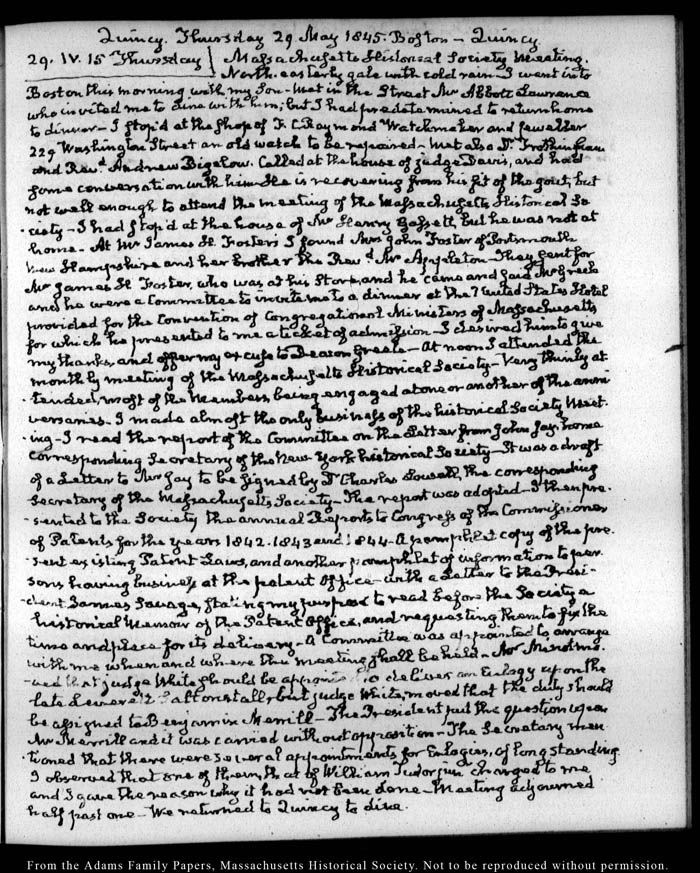 Quincy. Thursday 29 May 1845. Boston – Quincy.
29. IV. 15 Thursday } Massachusetts Historical Society Meeting.
North-easterly gale with cold rain – I went into
Boston this morning with my Son – Met in the Street Mr Abbott Lawrence
who invited me to dine with him; but I had predetermined to return home
to dinner – I stop'd at the shop of F. C. Raymond Watchmaker and jeweller
229 Washington Street an old watch to be repaired – Met also Dr Frothingham
and Revd Andrew Bigelow. Called at the house of judge Davis, and had
some conversation with him – He is recovering from his fit of the gout, but
not well enough to attend the meeting of the Massachusetts Historical So
-ciety – I had stop'd at the house of Mr Henry Bassett, but he was not at
home – At Mr James H. Foster's I found Mrs John Foster of Portsmouth
New Hampshire and her brother the Revd Mr Appleton – They sent for
Mr James H Foster, who was at his Store, and he came and said Mr Greele
and he were a Committee to invite me to a dinner at the United States Hotel
provided for the Convention of Congregational Ministers of Massachusetts
for which he presented to me a ticket of admission – I desired him to give
my thanks, and offer my excuse to Deacon Greele – At noon I attended the
monthly meeting of the Massachusetts Historical Society – Very thinly at
-tended, most of the Members being engaged at one or another of the anni
-versaries – I made almost the only business of the historical Society Meet-
-ing – I read the report of the Committee on the Letter from John Jay, home
corresponding Secretary of the New York historical Society – It was a draft
of a Letter to Mr Jay to be signed by Dr Charles Lowell, the corresponding
Secretary of the Massachusetts Society – The report was adopted – I then pre-
-sented to the Society the annual Reports to Congress of the Commissioner
of Patents for the years 1842. 1843 and 1844 – A pamphlet copy of the pre-
-sent existing Patent Laws, and another pamphlet of information to per-
sons having business at the patent Office – with a Letter to the Presi-
-dent James Savage, stating my purpose to read before the Society a
historical Memoir of the Patent Office, and requesting them to fix the
time and place for its delivery – A Committee was appointed to arrange
with me when and where the meeting shall be held – Mr
-ved that judge White should be appointed to deliver an Eulogy upon the
late Leverett Saltonstall, but judge White, moved that the duty should
be assigned to Benjamin Merrill – The President put the question upon
Mr Merrill and it was carried without opposition – The Secretary men
-tioned that there were several appointments for Eulogies, of long standing
I observed that one of them, that of William Tudor junr charged to me
and I gave the reason why it had not been done – Meeting adjourned
half past one – We returned to Quincy to dine.
From the Adams Family Papers, Massachusetts Historical Society. Not to be reproduced without permission.